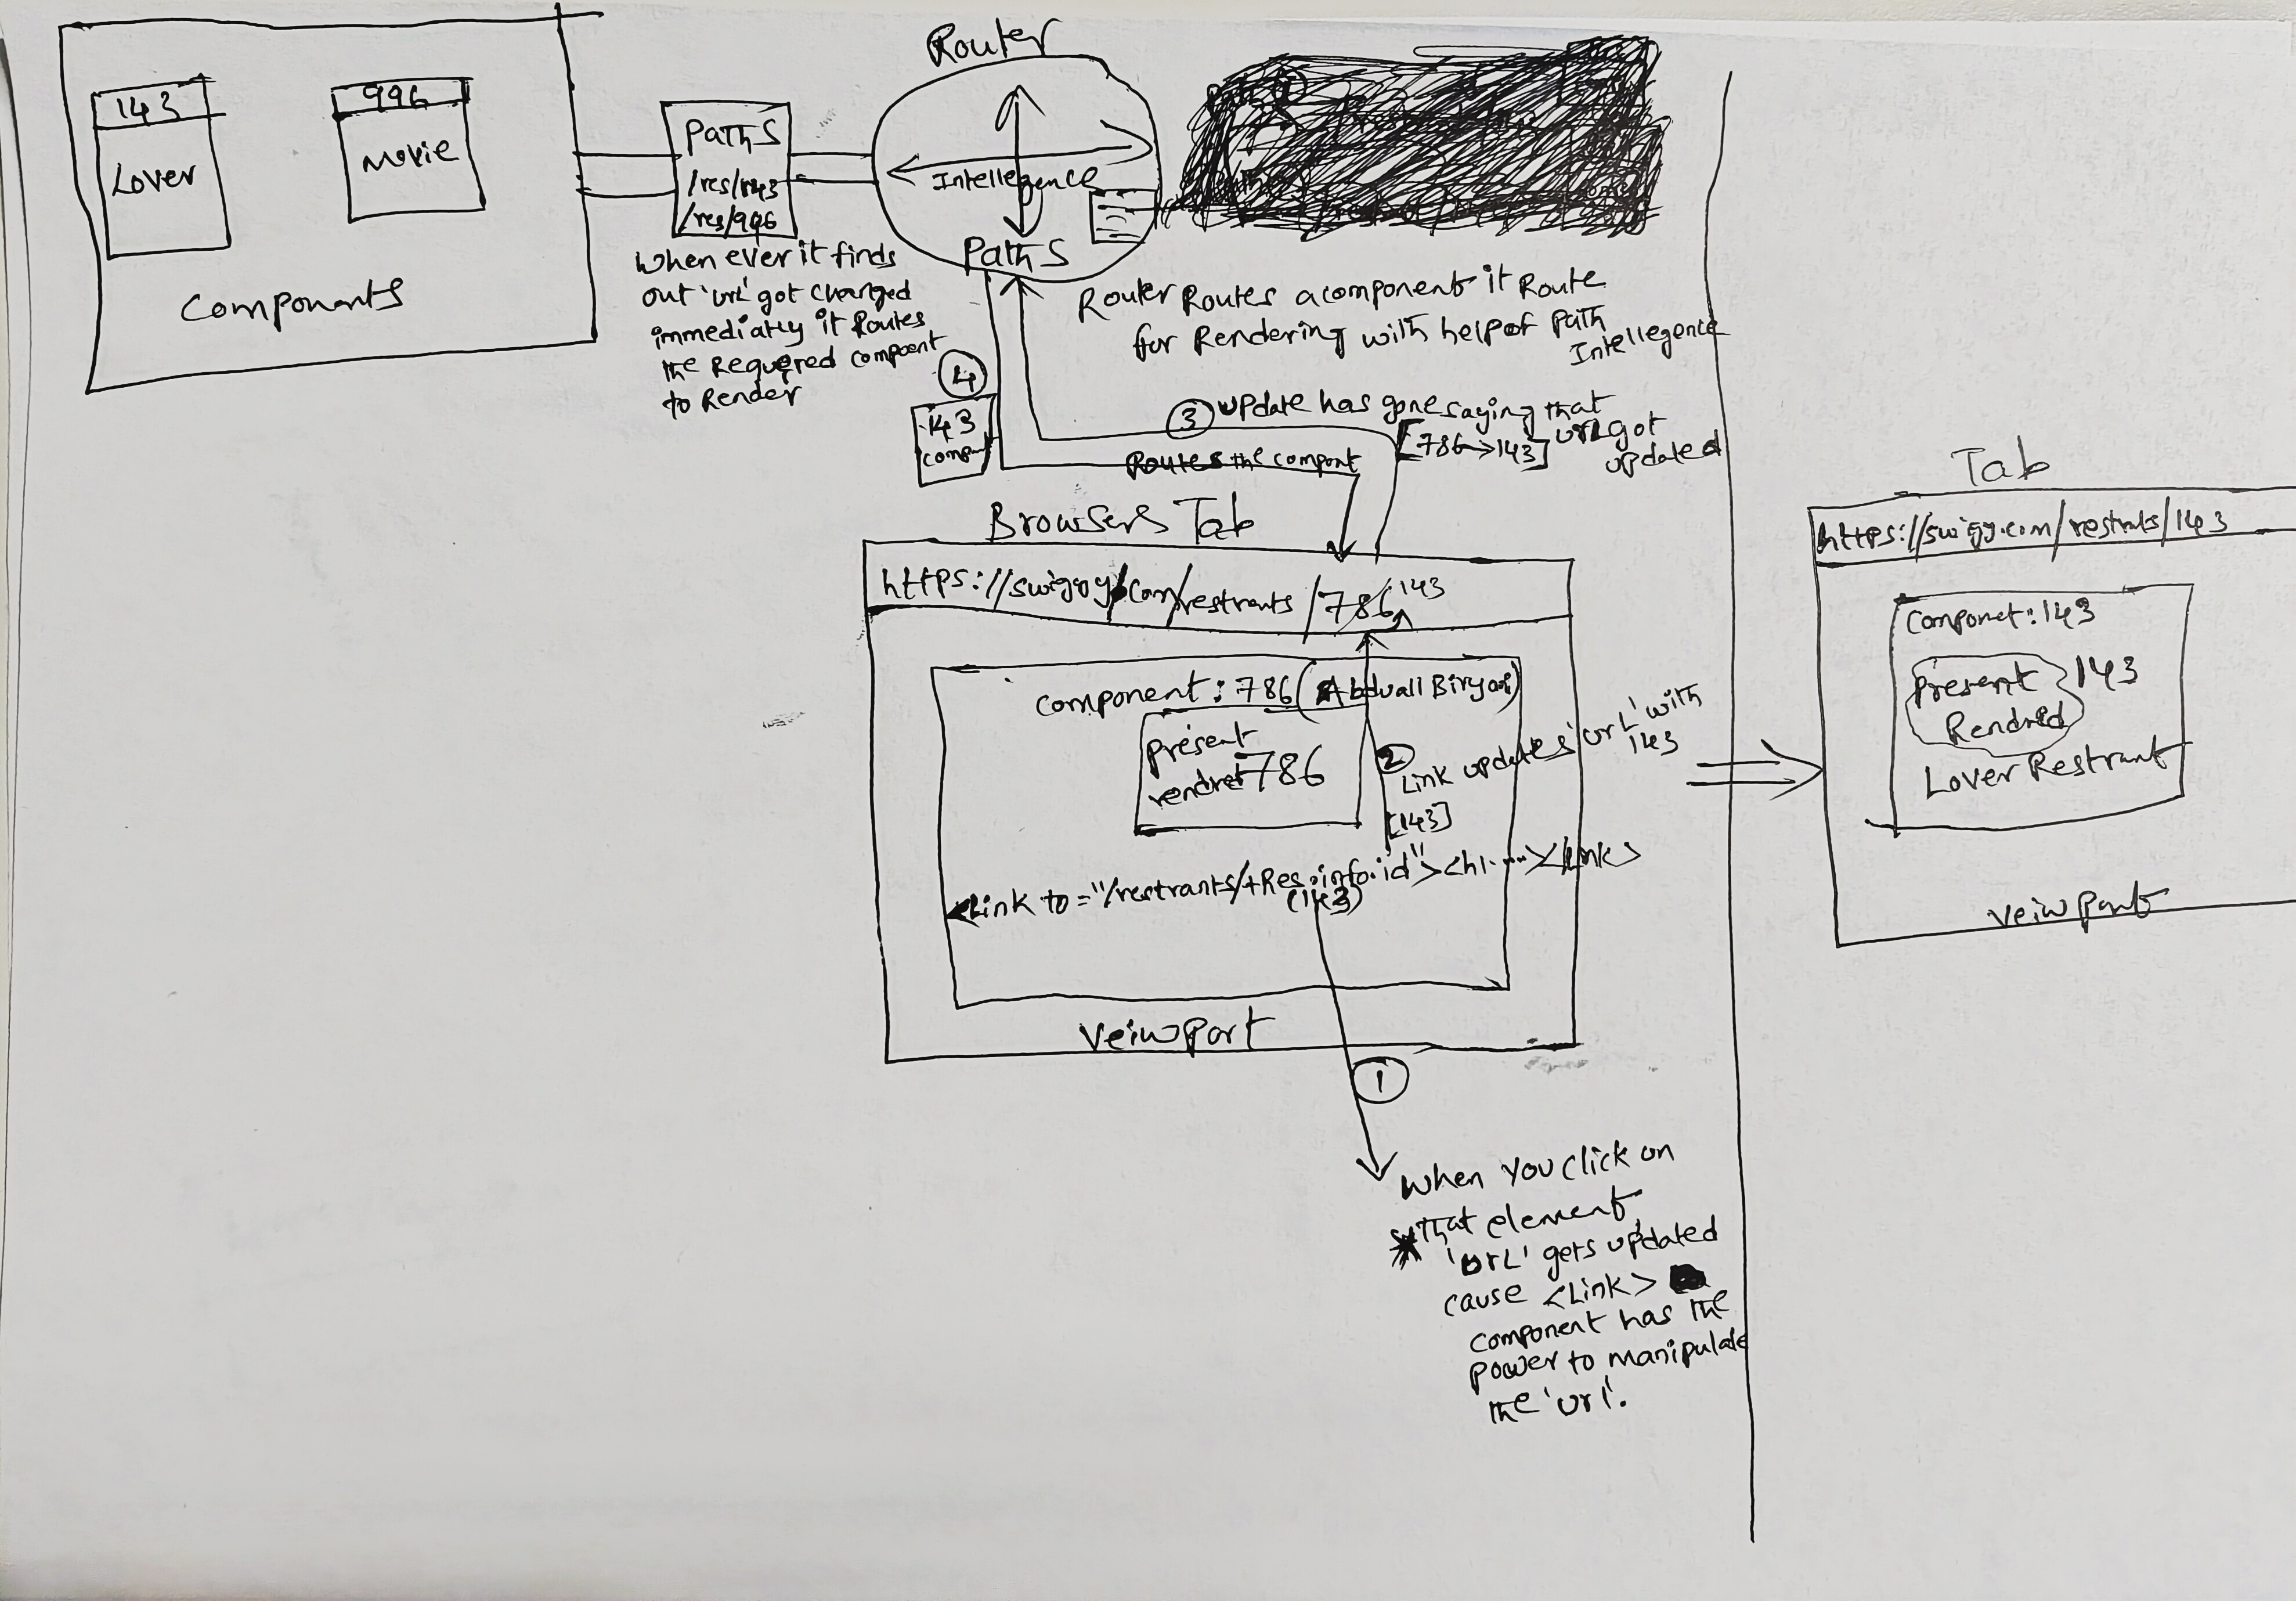 143
Lover
996
Movie
Components
Paths
/res/143
/res/996
When ever it finds
out 'url' got changed
immediatly it Routes
the Requered compoent
to Render
Router
Intellegence
Paths
Router Routes a component it Route
for Rendering with help of Path
Intellegence
4
143
3 update has gone saying that
[786->143] url got
updated
Routes the compont
Browsers Tab
https://swiggy/com/restrants/786 143
component: 786 (Abduall Biryani)
present
rendret 786
2
Link updates 'url' with
143
[143]
<Link to="/restrants/+Res.info.id"><h1....></Link>
(143)
Veiwport
1
When you click on
that element
'url' gets updated
cause <Link>
component has the
power to manipulate
the 'url'.
Tab
https://swigy.com/restrnts/143
Componet: 143
Present 143
Rendred
Lover Restrant
Veiwport